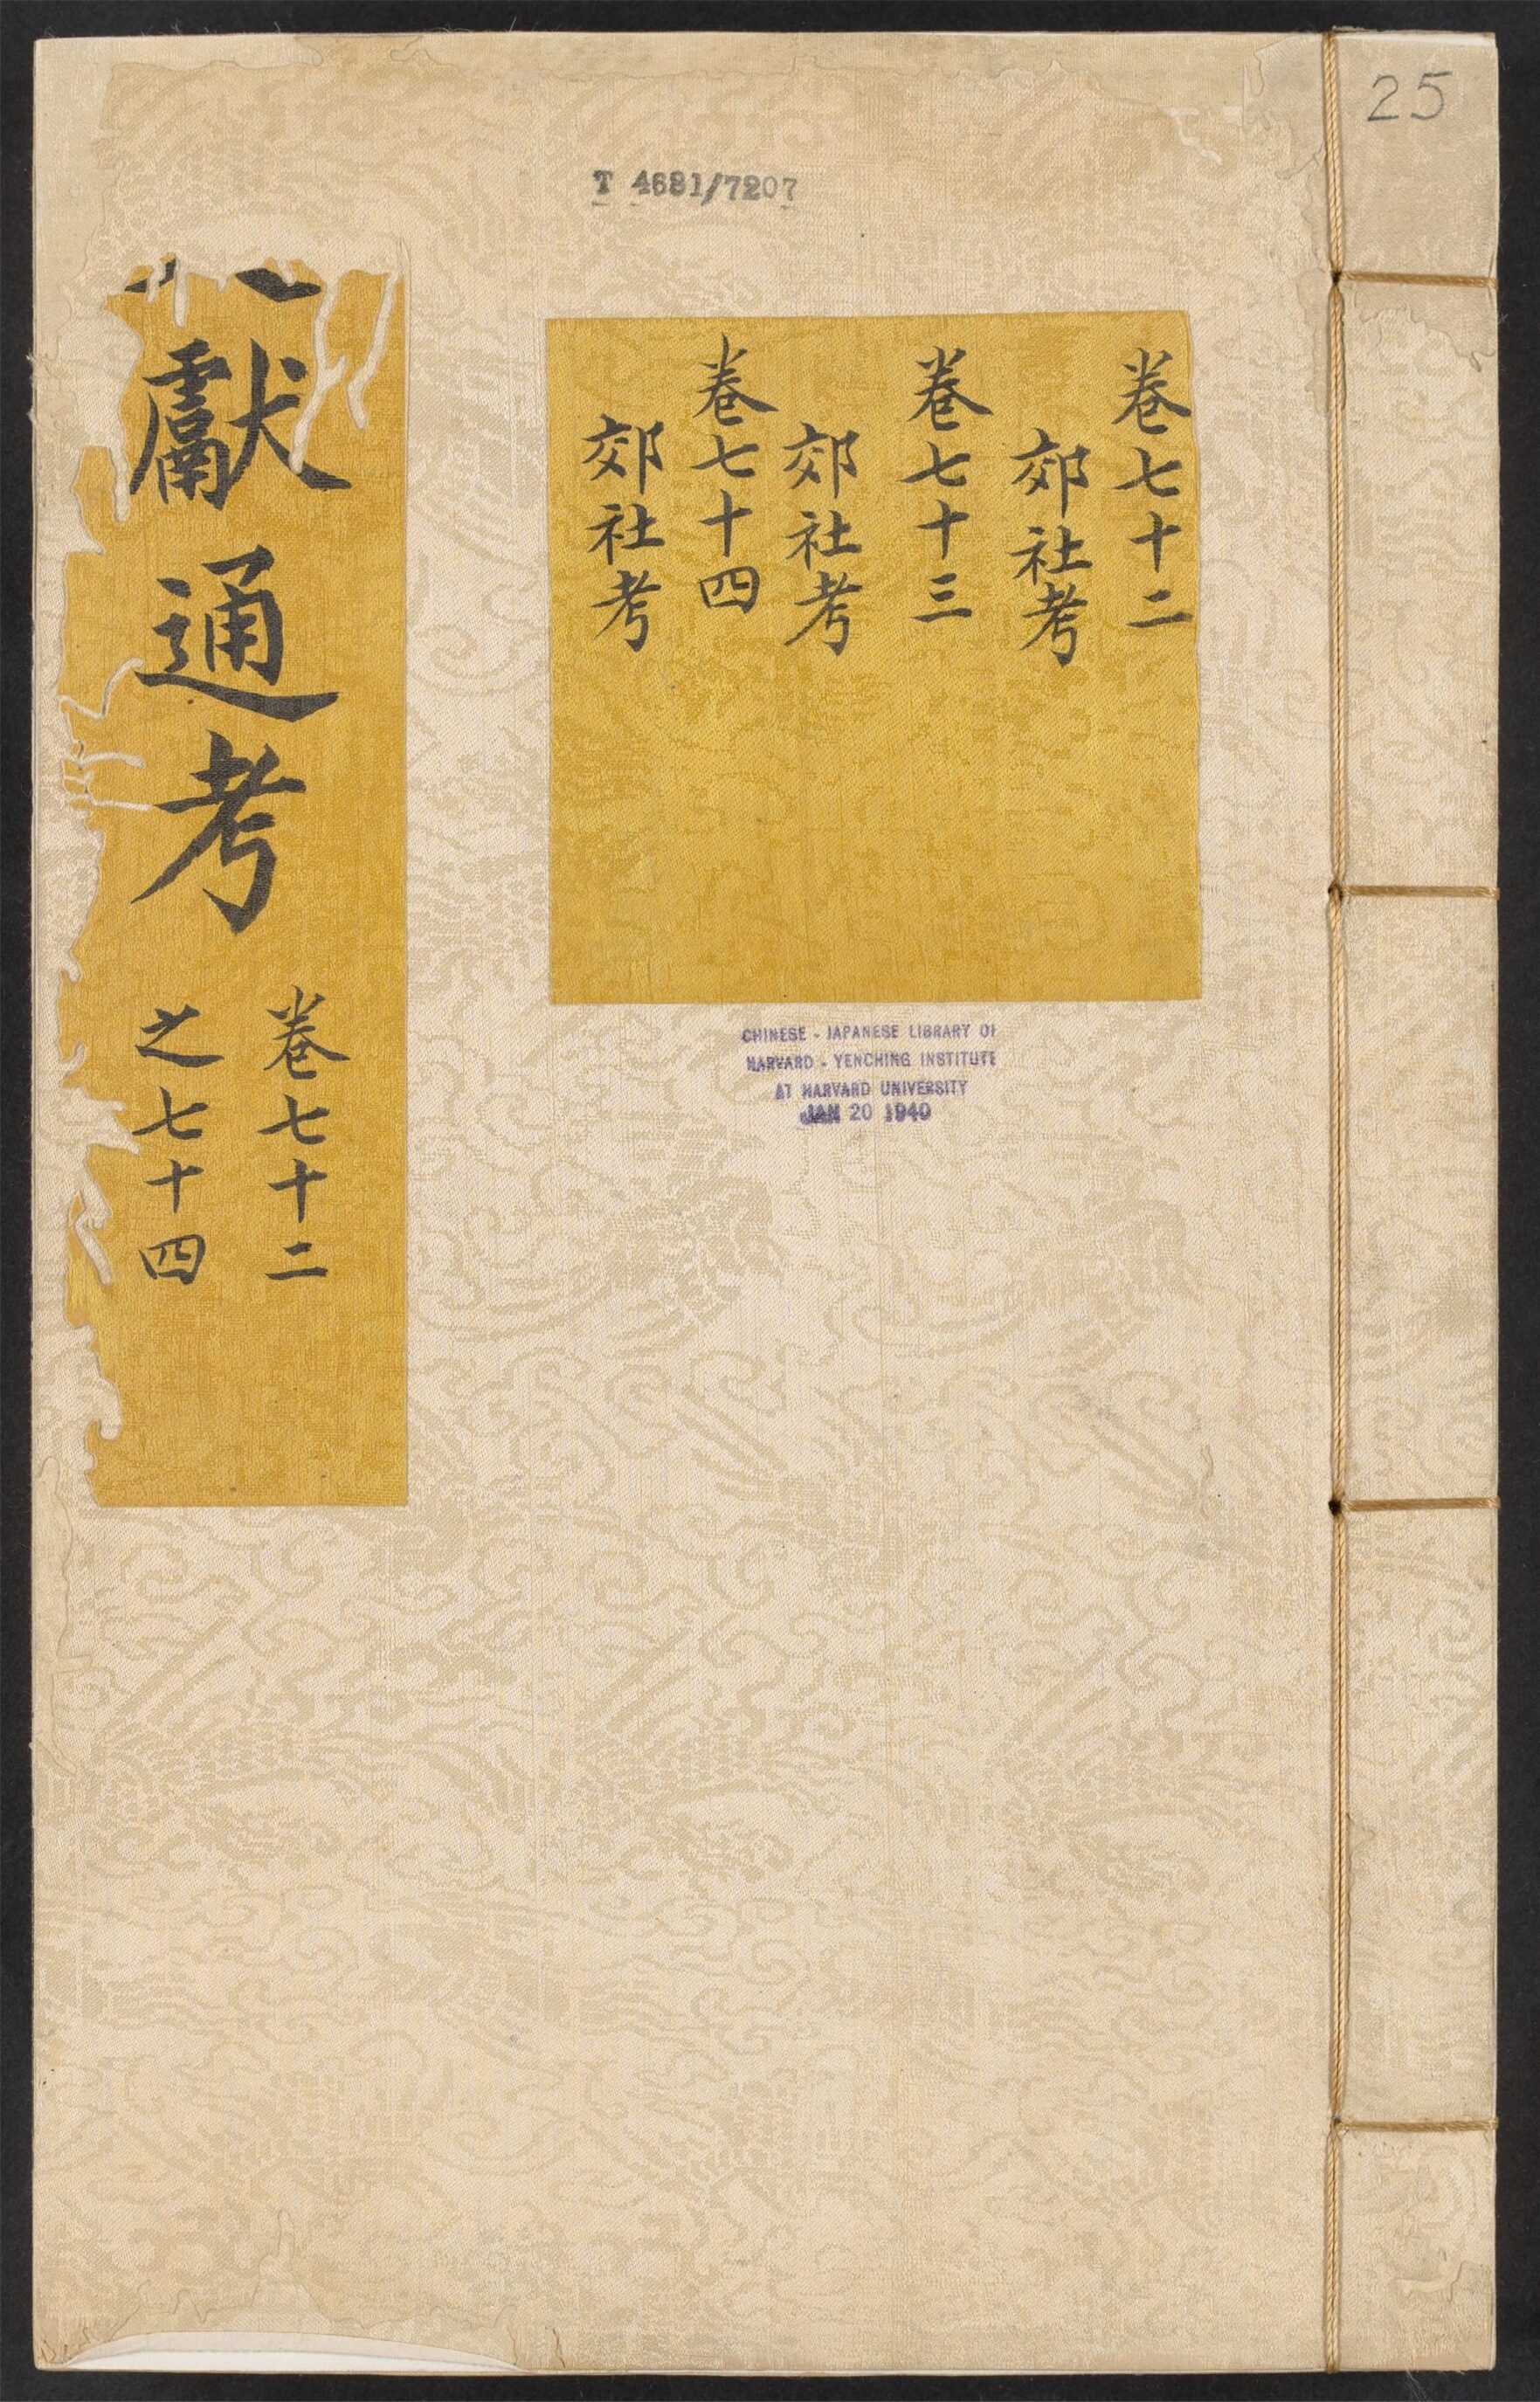 25
T 4681/7207
卷七十二
郊社考
卷七十三
郊社考
卷七十四
郊社考
獻通考
卷七十二
之七十四
CHINESE - JAPANESE LIBRARY OF
HARVARD - YENCHING INSTITUTE
AT HARVARD UNIVERSITY
JAN 20 1940